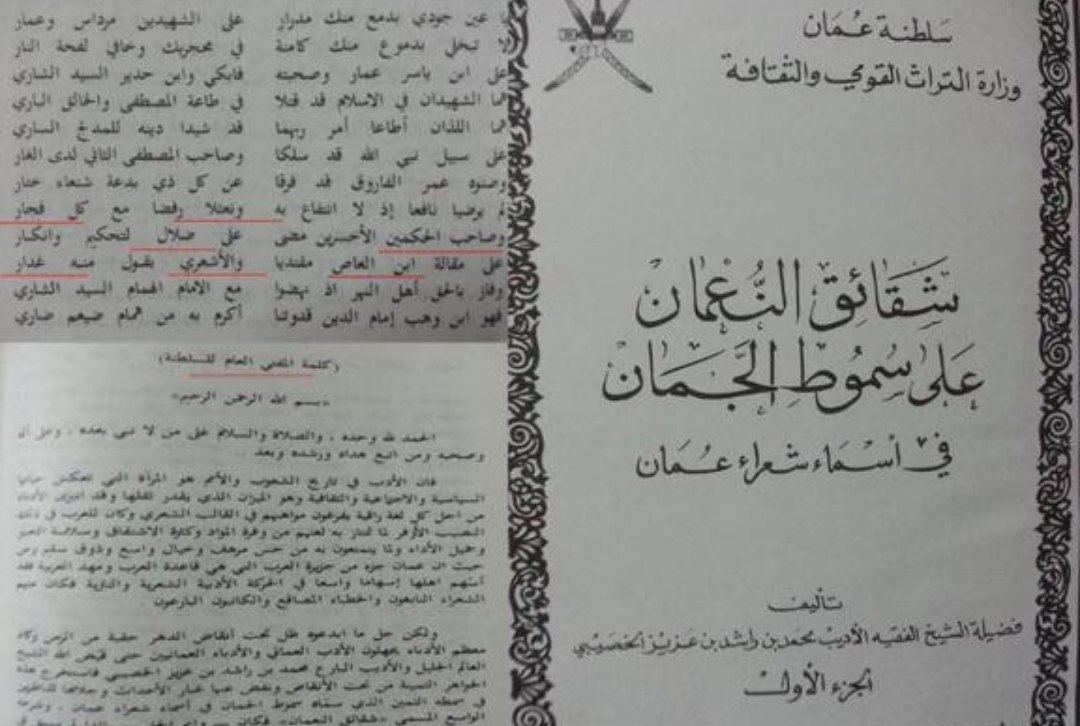 سلطنة عُمان
وزارة التراث القومي والثقافة
شقائق النُّعمان
على سموط الجمان
في أسماء شعراء عمان
تأليف
فضيلة الشيخ الفقيه الأديب محمد بن راشد بن عزيز الخصيبي
الجزء الأول
يا عين جودي بدمع منك مدرار على الشهيدين مرداس وعمار
لا تبخلي بدموع منك كامنة في محجريك وخافي لفحة النار
على ابن ياسر عمار وصحبته فابكي وابن حدير السيد الشاري
هما الشهيدان في الاسلام قد قتلا في طاعة المصطفى والخالق الباري
هما اللذان أطاعا أمر ربهما قد شيدا دينه للمدلج الساري
على سبيل نبي الله قد سلكا وصاحب المصطفى الثاني لدى الغار
وصنوه عمر الفاروق قد فرقا عن كل ذي بدعة شنعاء ختار
لم يرضيا نافعا إذ لا انتفاع به ونعثلا رفضا مع كل فجار
وصاحب الحكمين الأخسرين مضى على ضلال لتحكيم وانكار
على مقالة ابن العاص مقتديا والأشعري بقول منه غدار
وفاز بالحق أهل النهر اذ نهضوا مع الامام الهمام السيد الشاري
فهو ابن وهب إمام الدين قدوتنا أكرم به من همام ضيغم ضاري
(كلمة المفتي العام للسلطنة)
«بسم الله الرحمن الرحيم»
الحمد لله وحده ، والصلاة والسلام على من لا نبي بعده ، وعلى آل
وصحبه ومن اتبع هداه ورشده وبعد ..
فان الأدب في تاريخ الشعوب والأمم هو المرآة التي تعكس حياتها
السياسية والاجتماعية والثقافية وهو الميزان الذي يقدر ثقلها وقد انبرى الأدباء
من اجل كل لغة راقية يفرغون مواهبهم في القالب الشعري وكان للعرب في ذلك
النصيب الأوفر لما تمتاز به لغتهم من وفرة المواد وكثرة الاشتقاق وسلاسة التعبير
وجميل الأداء ولما يتمتعون به من حس مرهف وخيال واسع وذوق سليم ومن
حيث ان عمان جزء من جزيرة العرب التي هي قاعدة العرب ومهد العربية فقد
أسهم اهلها إسهاما واسعا في الحركة الأدبية الشعرية والنثرية فكان منهم
الشعراء النابغون والخطباء المصاقع والكتابون البارعون .
ولكن جل ما ابدعوه ظل تحت أنقاض الدهر حقبة من الزمن وكاد
معظم الأدباء يجهلون الأدب العماني والأدباء العمانيين حتى قيض الله الشيخ
العالم الجليل والأديب البارع محمد بن راشد بن عزيز الخصيبي فاستخرج هذه
الجواهر الثمينة من تحت الأنقاض ونفض عنها غبار الأحداث وجلاها للناظرين
في سمطه الثمين الذي سماه سموط الجمان في أسماء شعراء عمان ، وشرحه
الواسع المسمى «شقائق النعمان» فكان